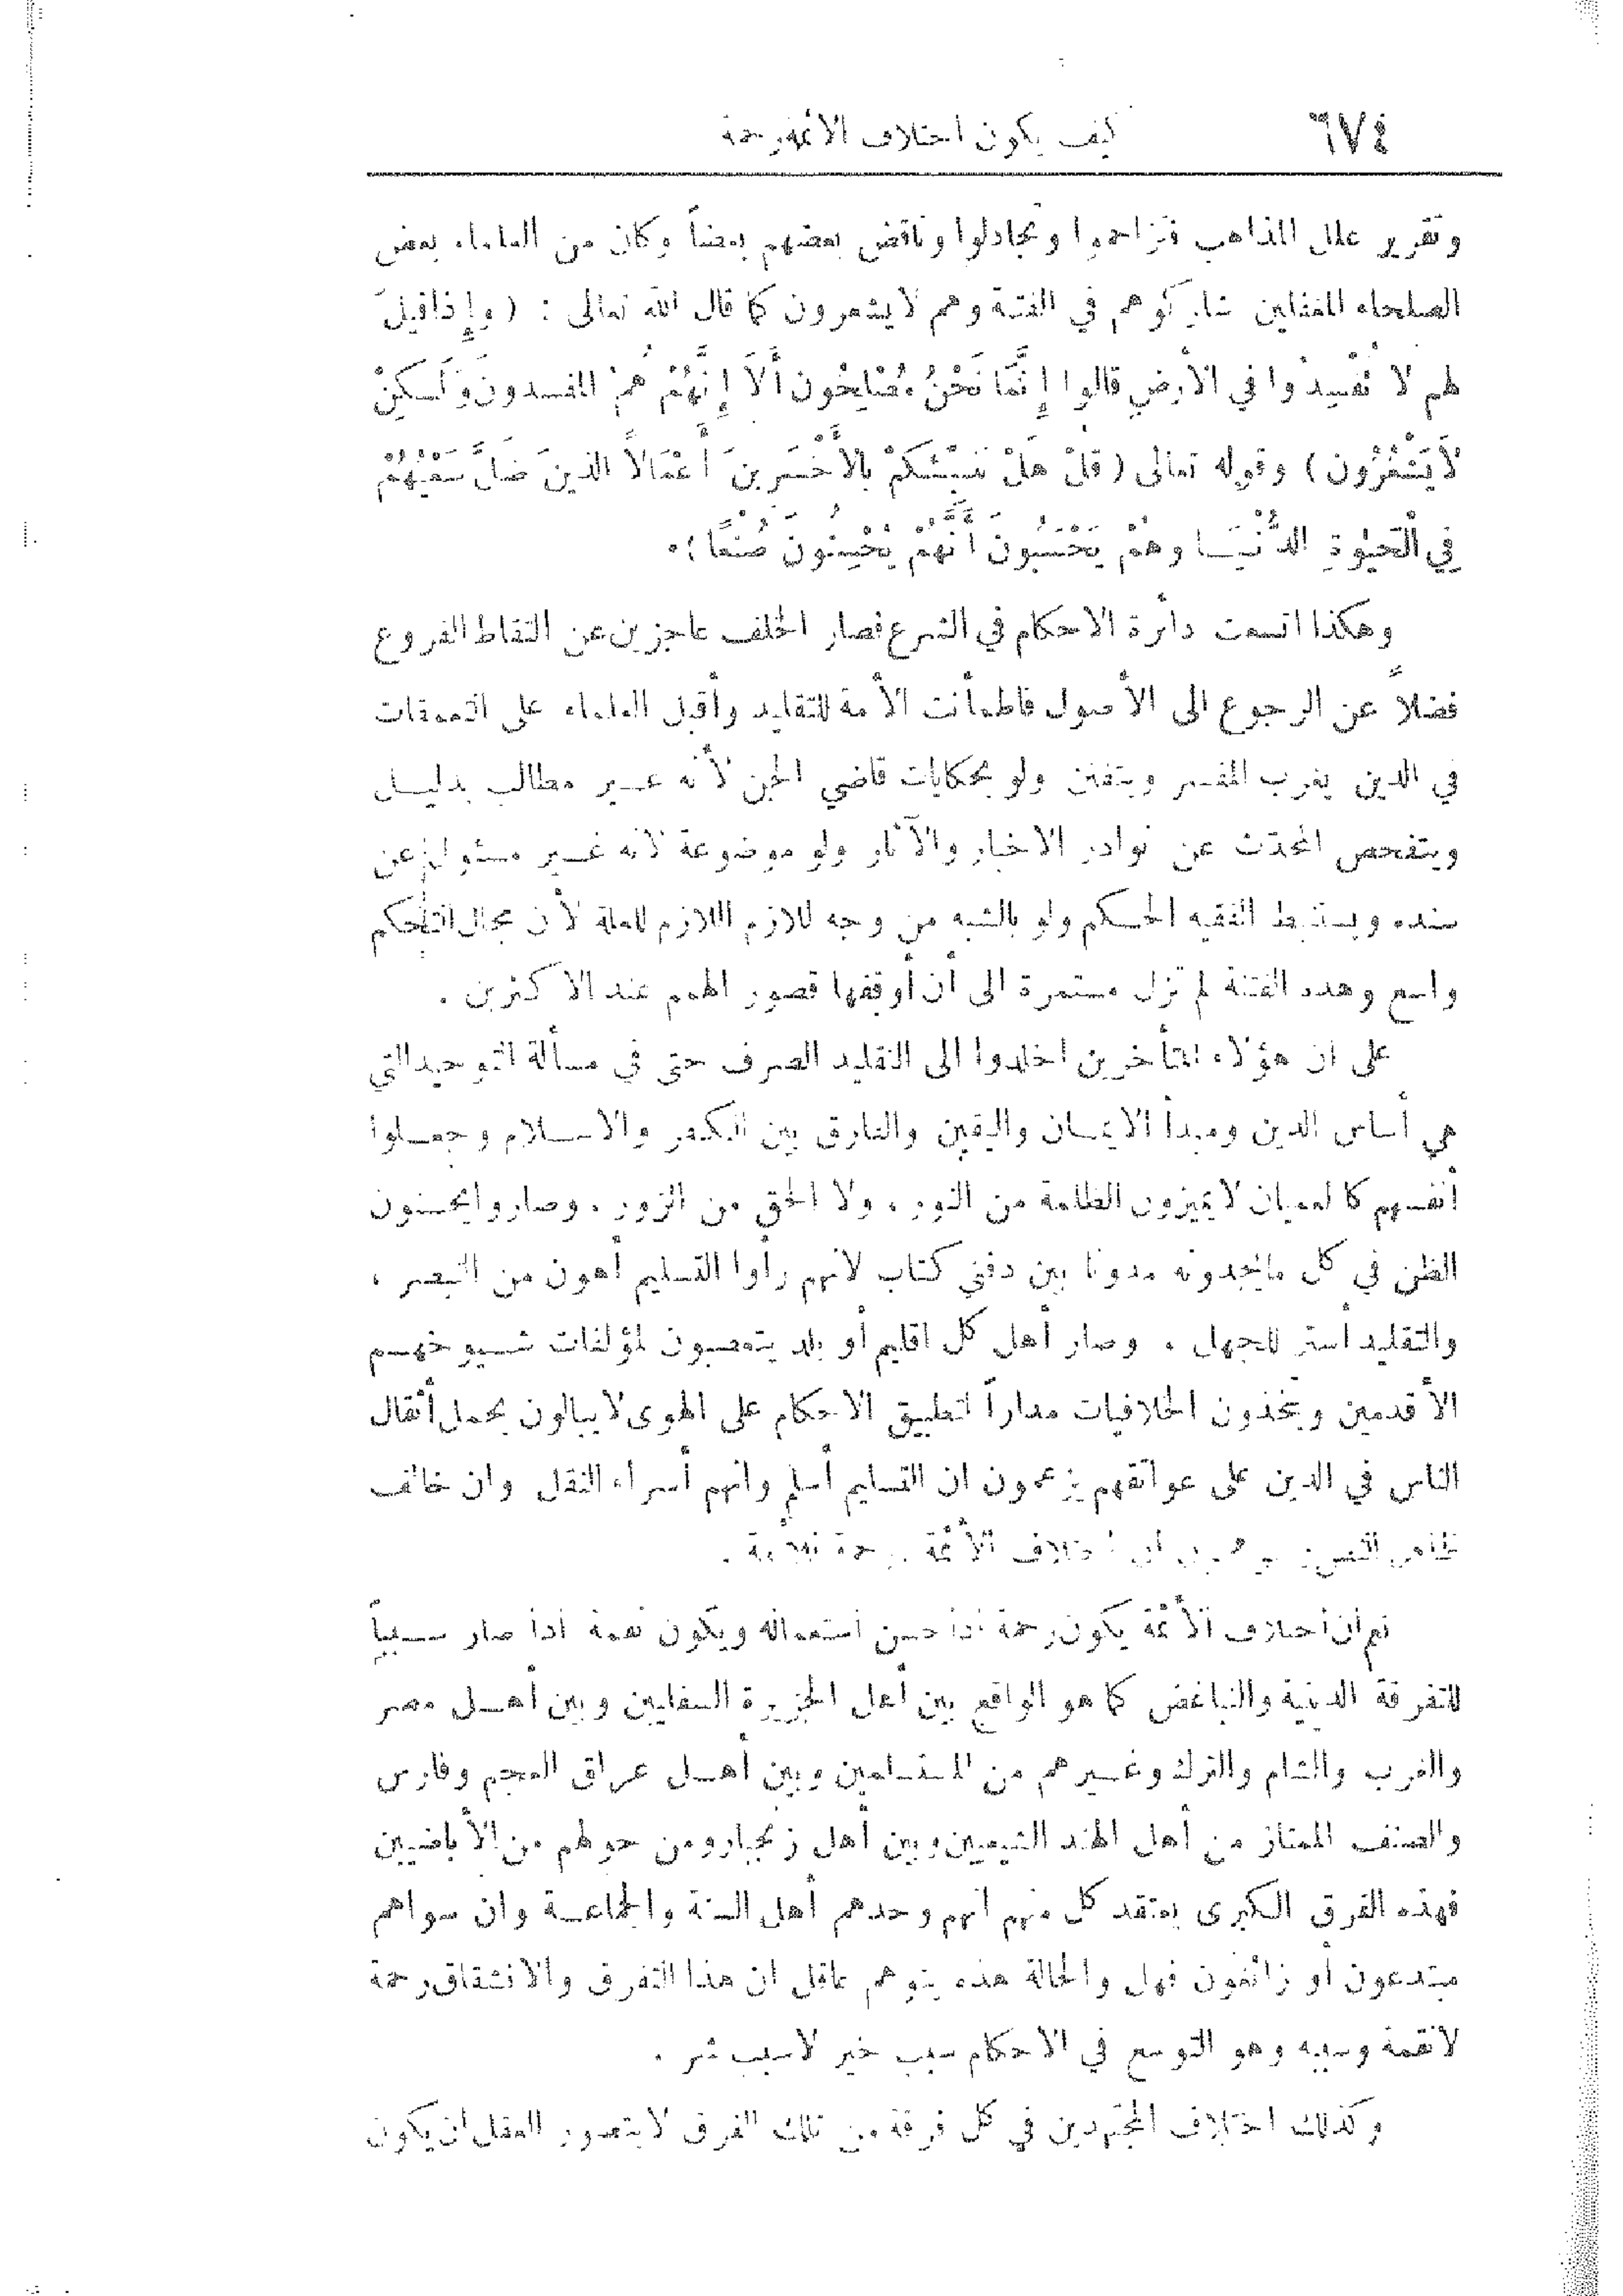 ٦٧٤ كيف يكون اختلاف الأئمة رحمة
وتقرير علل المذاهب فتزاحموا وتجادلوا وناقض بعضهم بعضاً وكان من العلماء بعض
الصلحاء المغفلين شاركوهم في الفتنة وهم لا يشعرون كما قال الله تعالى : ( وإِذا قيلَ
لهم لا تُفْسِدُوا في الأرضِ قالوا إِنَّمَا نَحْنُ مُصْلِحُون أَلَا إِنَّهُمْ هُمُ المفسدونَ وَلَـكِنْ
لاَ يَشْعُرُون ) وقوله تعالى ( قُلْ هَلْ نُنَبِّئُكُمْ بالأَخْسَرِينَ أَعْمَالاً الذينَ ضَلَّ سَعْيُهُمْ
فِي الْحَيٰوةِ الدُّنْيَـا وهُمْ يَحْسَبُونَ أَنَّهُمْ يُحْسِنُونَ صُنْعًا ) .
وهكذا اتسعت دائرة الاحكام في الشرع فصار الخلف عاجزين عن التقاط الفروع
فضلاً عن الرجوع الى الأصول فاطمأنت الأمة للتقليد وأقبل العلماء على التعمقات
في الدين يغرب المفسر ويتفنن ولو بحكايات قاضي الجن لأنه غـير مطالب بدليـل
ويتفحص المحدث عن نوادر الاخبار والآثار ولو موضوعة لانه غـير مسئول عن
سنده ويستنبط الفقيه الحـكم ولو بالشبه من وجه للازم اللازم للعلة لأن مجال التحكم
واسع وهذه الفتنة لم تزل مستمرة الى أن أوقفها قصور الهمم عند الاكثرين .
على ان هؤلاء المتأخرين اخلدوا الى التقليد الصرف حتى في مسألة التوحيد التي
هي أساس الدين ومبدأ الايمـان واليقين والفارق بين الـكفر والاسـلام وجعـلوا
أنفسهم كالعميان لا يميزون الظلمة من النور ، ولا الحق من الزور . وصاروا يحسنون
الظن في كل ما يجدونه مدونا بين دفتي كتاب لانهم رأوا التسليم أهون من التبصر ،
والتقليد أستر للجهل . وصار أهل كل اقليم أو بلد يتعصبون لمؤلفات شـيوخهـم
الأقدمين ويتخذون الخلافيات مداراً لتطبيق الاحكام على الهوى لا يبالون بحمل أثقال
الناس في الدين على عواتقهم يزعمون ان التسليم أسلم وانهم أسراء النقل وان خالف
ظاهر النص أن اختلاف الأئمة رحمة
نعم ان اختلاف الأئمة يكون رحمة اذا حسن استعماله ويكون نقمة اذا صار سـبباً
للتفرقة الدينية والتباغض كما هو الواقع بين أهل الجزيرة السلفيين وبين أهـل مصر
والغرب والشام والترك وغـيرهم من وبين أهـل عراق العجم وفارس
والصنف الممتاز من أهل الهند الشيعيين وبين أهل زنجبار ومن حولهم من الأباضيين
فهذه الفرق الـكبرى يعتقد كل منهم انهم وحدهم أهل السنة والجماعـة وان سواهم
مبتدعون أو زائغون فهل والحالة هذه يتوهم عاقل ان هذا التفرق والانشقاق رحمة
لا نقمة وسببه وهو التوسع في الاحكام سبب خير لا سبب شر .
وكذلك اختلاف المجتهدين في كل فرقة من تلك الفرق لا يتصور العقل ان يكون